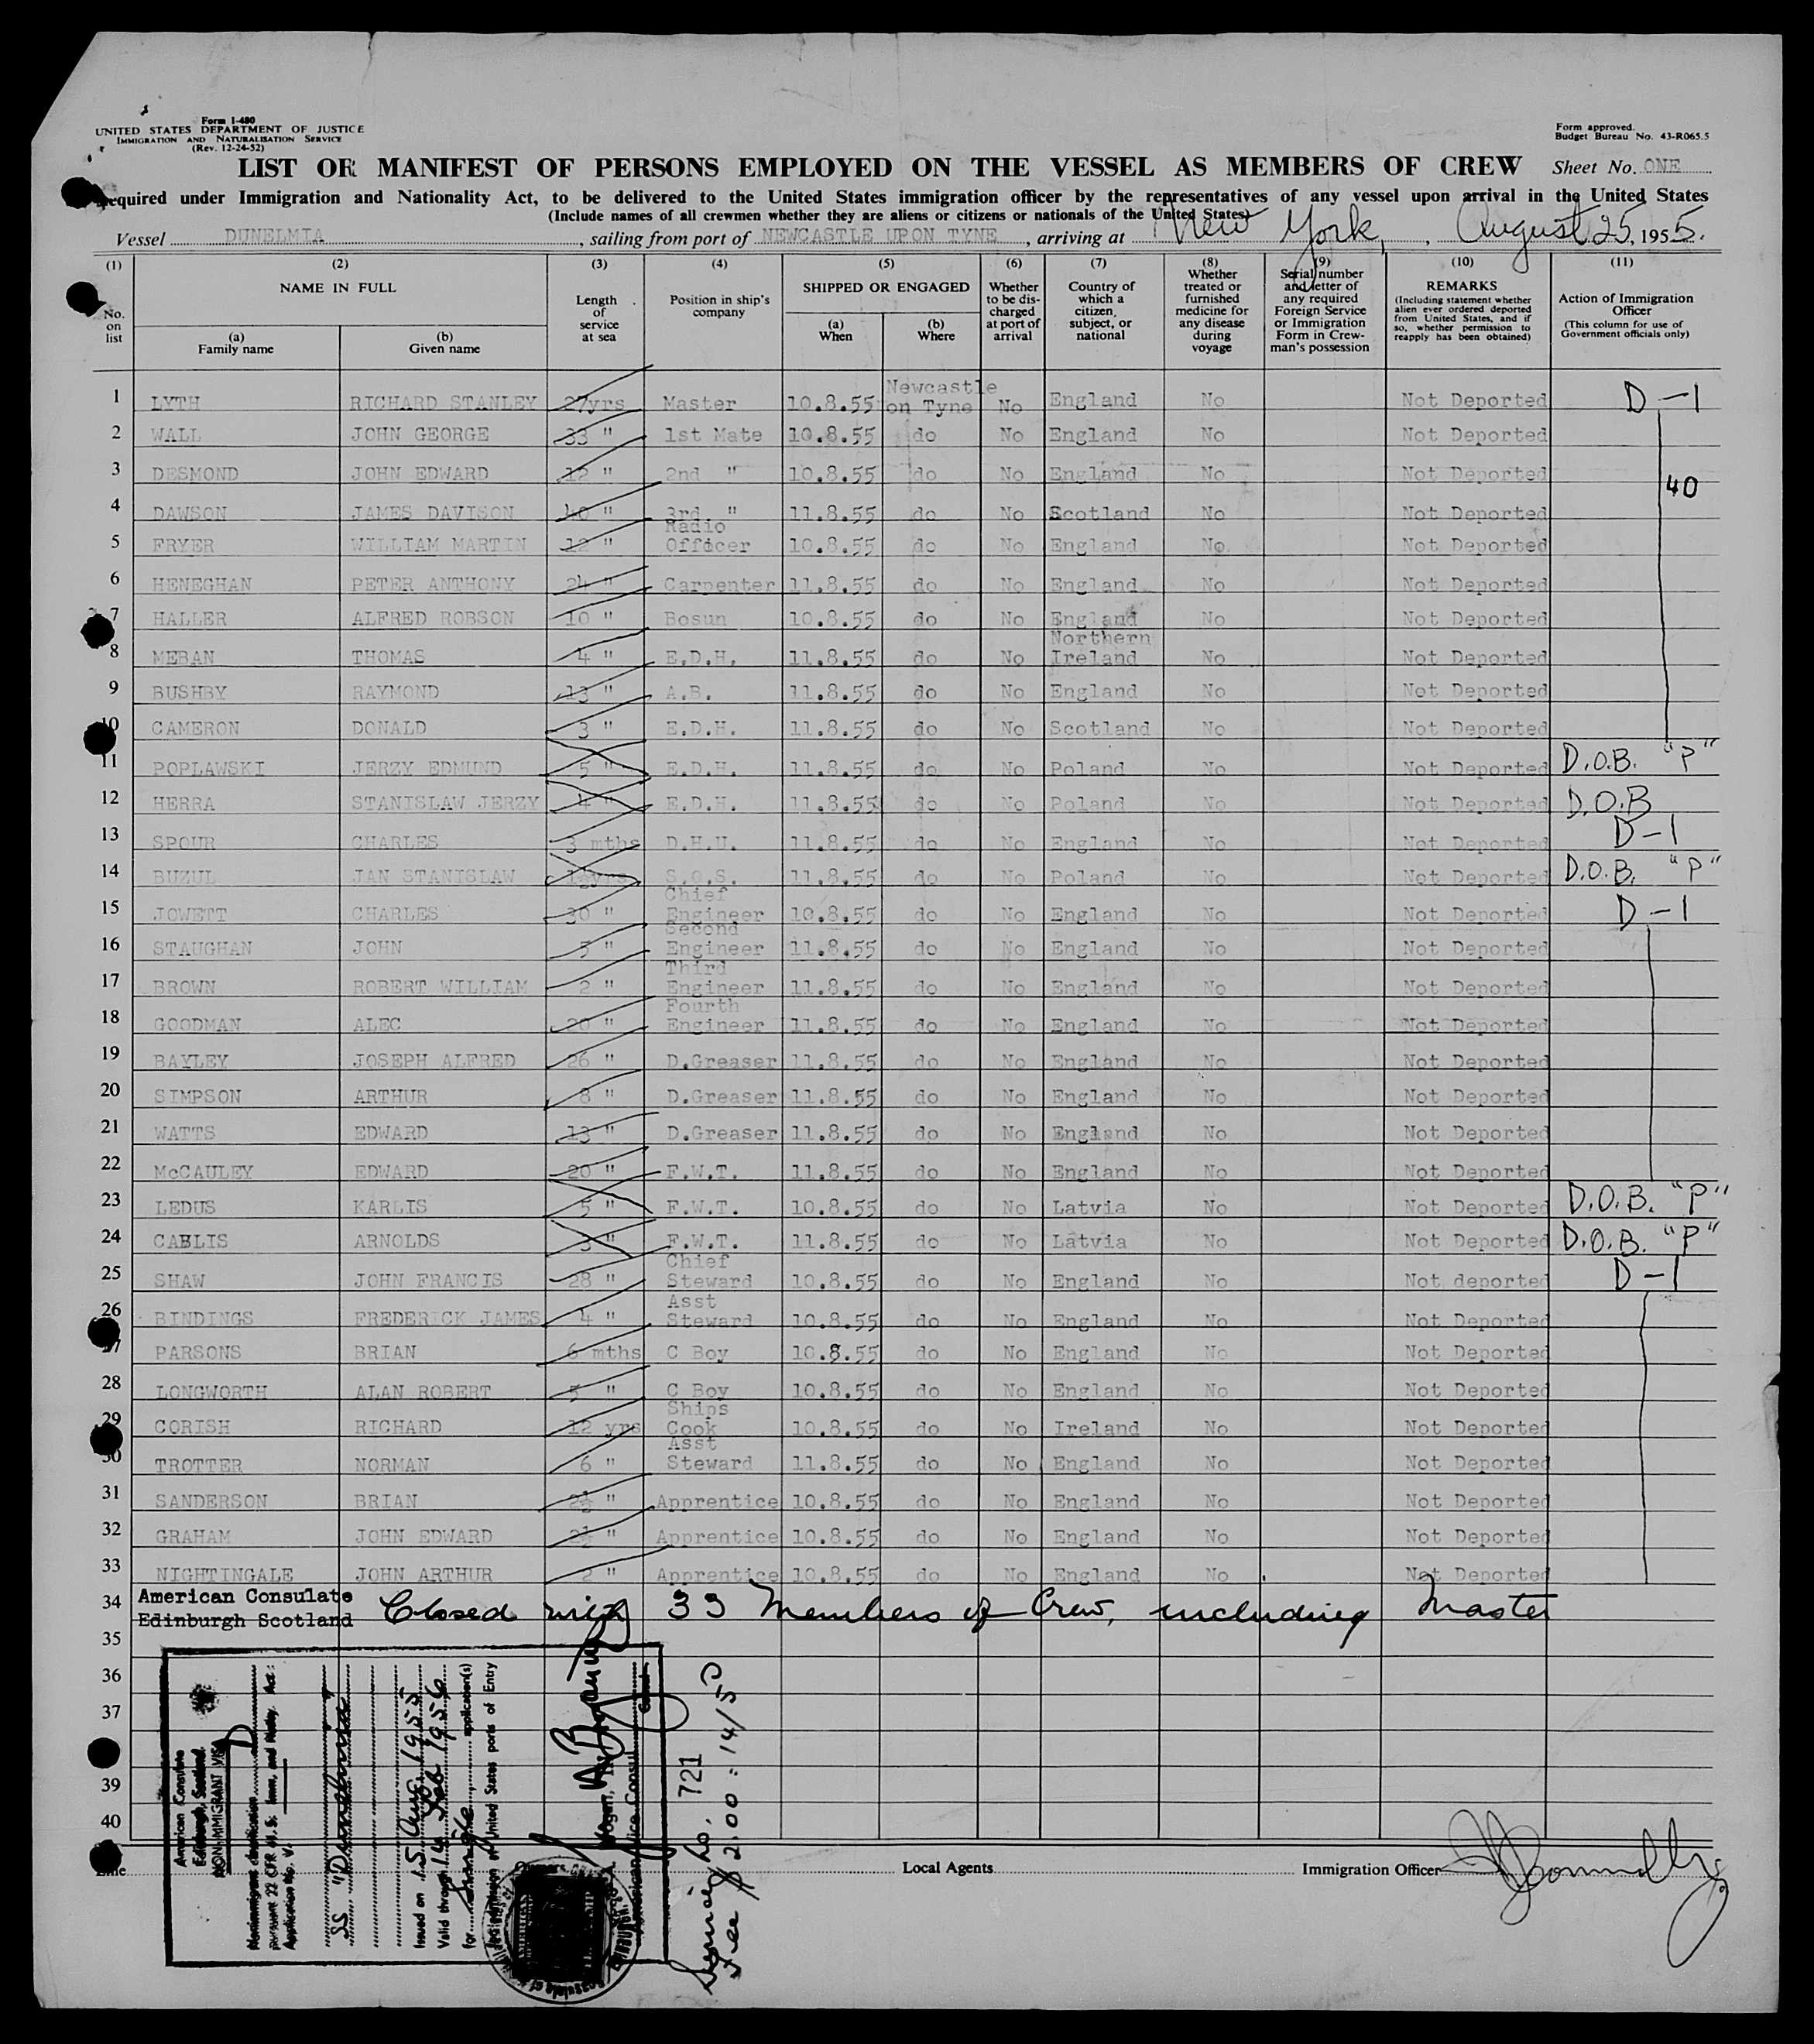 Form I-480
UNITED STATES DEPARTMENT OF JUSTICE
IMMIGRATION AND NATURALISATION SERVICE
(Rev. 12-24-52)
Form approved.
Budget Bureau No. 43-R065.5
LIST OR MANIFEST OF PERSONS EMPLOYED ON THE VESSEL AS MEMBERS OF CREW Sheet No. ONE
equired under Immigration and Nationality Act, to be delivered to the United States immigration officer by the representatives of any vessel upon arrival in the United States
(Include names of all crewmen whether they are aliens or citizens or nationals of the United States)
Vessel DUNELMIA, sailing from port of NEWCASTLE UPON TYNE, arriving at New York, August 25, 1955.
(1) (2) (3) (4) (5) (6) (7) (8) (9) (10) (11)
No. on list
NAME IN FULL
(a) Family name
(b) Given name
Length of service at sea
Position in ship's company
SHIPPED OR ENGAGED
(a) When
(b) Where
Whether to be discharged at port of arrival
Country of which a citizen, subject, or national
Whether treated or furnished medicine for any disease during voyage
Serial number and letter of any required Foreign Service or Immigration Form in Crewman's possession
REMARKS
(Including statement whether alien ever ordered deported from United States, and if so, whether permission to reapply has been obtained)
Action of Immigration Officer
(This column for use of Government officials only)
1 LYTH RICHARD STANLEY 27yrs Master 10.8.55 Newcastle on Tyne No England No Not Deported D-1
2 WALL JOHN GEORGE 33 " 1st Mate 10.8.55 do No England No Not Deported
3 DESMOND JOHN EDWARD 12 " 2nd " 10.8.55 do No England No Not Deported 40
4 DAWSON JAMES DAVISON 40 " 3rd. " 11.8.55 do No Scotland No Not Deported
5 FRYER WILLIAM MARTIN 12 " Radio Officer 10.8.55 do No England No Not Deported
6 HENEGHAN PETER ANTHONY 24 " Carpenter 11.8.55 do No England No Not Deported
7 HALLER ALFRED ROBSON 10 " Bosun 10.8.55 do No England No Not Deported
8 MEBAN THOMAS 4 " E.D.H. 11.8.55 do No Northern Ireland No Not Deported
9 BUSHBY RAYMOND 13 " A.B. 11.8.55 do No England No Not Deported
10 CAMERON DONALD 3 " E.D.H. 11.8.55 do No Scotland No Not Deported
11 POPLAWSKI JERZY EDMUND 5 " E.D.H. 11.8.55 do No Poland No Not Deported D.O.B. "P"
12 HERRA STANISLAW JERZY 4 " E.D.H. 11.8.55 do No Poland No Not Deported D.O.B
13 SPOUR CHARLES 3 mths D.H.U. 11.8.55 do No England No Not Deported D-1
14 BUZUL JAN STANISLAW 1½yrs S.O.S. 11.8.55 do No Poland No Not Deported D.O.B. "P"
15 JOWETT CHARLES 30 " Chief Engineer 10.8.55 do No England No Not Deported D-1
16 STAUGHAN JOHN 5 " Second Engineer 11.8.55 do No England No Not Deported
17 BROWN ROBERT WILLIAM 2 " Third Engineer 11.8.55 do No England No Not Deported
18 GOODMAN ALEC 20 " Fourth Engineer 11.8.55 do No England No Not Deported
19 BAYLEY JOSEPH ALFRED 26 " D.Greaser 11.8.55 do No England No Not Deported
20 SIMPSON ARTHUR 8 " D.Greaser 11.8.55 do No England No Not Deported
21 WATTS EDWARD 13 " D.Greaser 11.8.55 do No England No Not Deported
22 McCAULEY EDWARD 20 " F.W.T. 11.8.55 do No England No Not Deported
23 LEDUS KARLIS 5 " F.W.T. 10.8.55 do No Latvia No Not Deported D.O.B. "P"
24 ARNOLDS 3 " F.W.T. 11.8.55 do No Latvia No Not Deported D.O.B. "P"
25 SHAW JOHN FRANCIS 28 " Chief Steward 10.8.55 do No England No Not deported D-1
26 BINDINGS FREDERICK JAMES 4 " Asst Steward 10.8.55 do No England No Not Deported
27 PARSONS BRIAN 6 mths C Boy 10.8.55 do No England No Not Deported
28 LONGWORTH ALAN ROBERT 5 " C Boy 10.8.55 do No England No Not Deported
29 CORISH RICHARD 12 yrs Ships Cook 10.8.55 do No Ireland No Not Deported
30 TROTTER NORMAN 6 " Asst Steward 11.8.55 do No England No Not Deported
31 SANDERSON BRIAN 2½ " Apprentice 10.8.55 do No England No Not Deported
32 GRAHAM JOHN EDWARD 2½ " Apprentice 10.8.55 do No England No Not Deported
33 NIGHTINGALE JOHN ARTHUR 2 " Apprentice 10.8.55 do No England No Not Deported
34 American Consulate
Edinburgh Scotland Closed with 33 Members of Crew, including Master
35
36
37
39
40
American Consulate
Edinburgh, Scotland.
NONIMMIGRANT VISA D
Nonimmigrant classification
pursuant 22 CFR
Application No. V.
SS "Dunelmia"
Issued on 15 Aug 1955
Valid through 14 Feb 1956
for single application(s)
United States ports of Entry
Vice Consul
Service No. 721
Fee $2.00 = 14/5D
Line
Local Agents
Immigration Officer